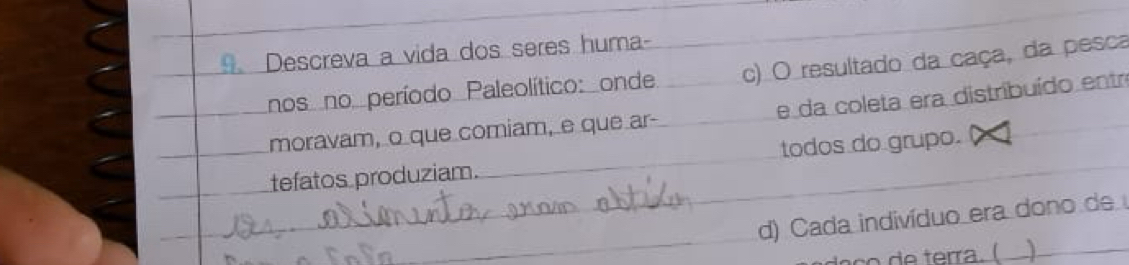 9. Descreva a vida dos seres huma-
nos no período Paleolítico: onde
moravam, o que comiam, e que ar-
tefatos produziam.
alimentos eram
c) O resultado da caça, da pesca
e da coleta era distribuído entre
todos do grupo.
d) Cada indivíduo era dono de
de terra. ( )